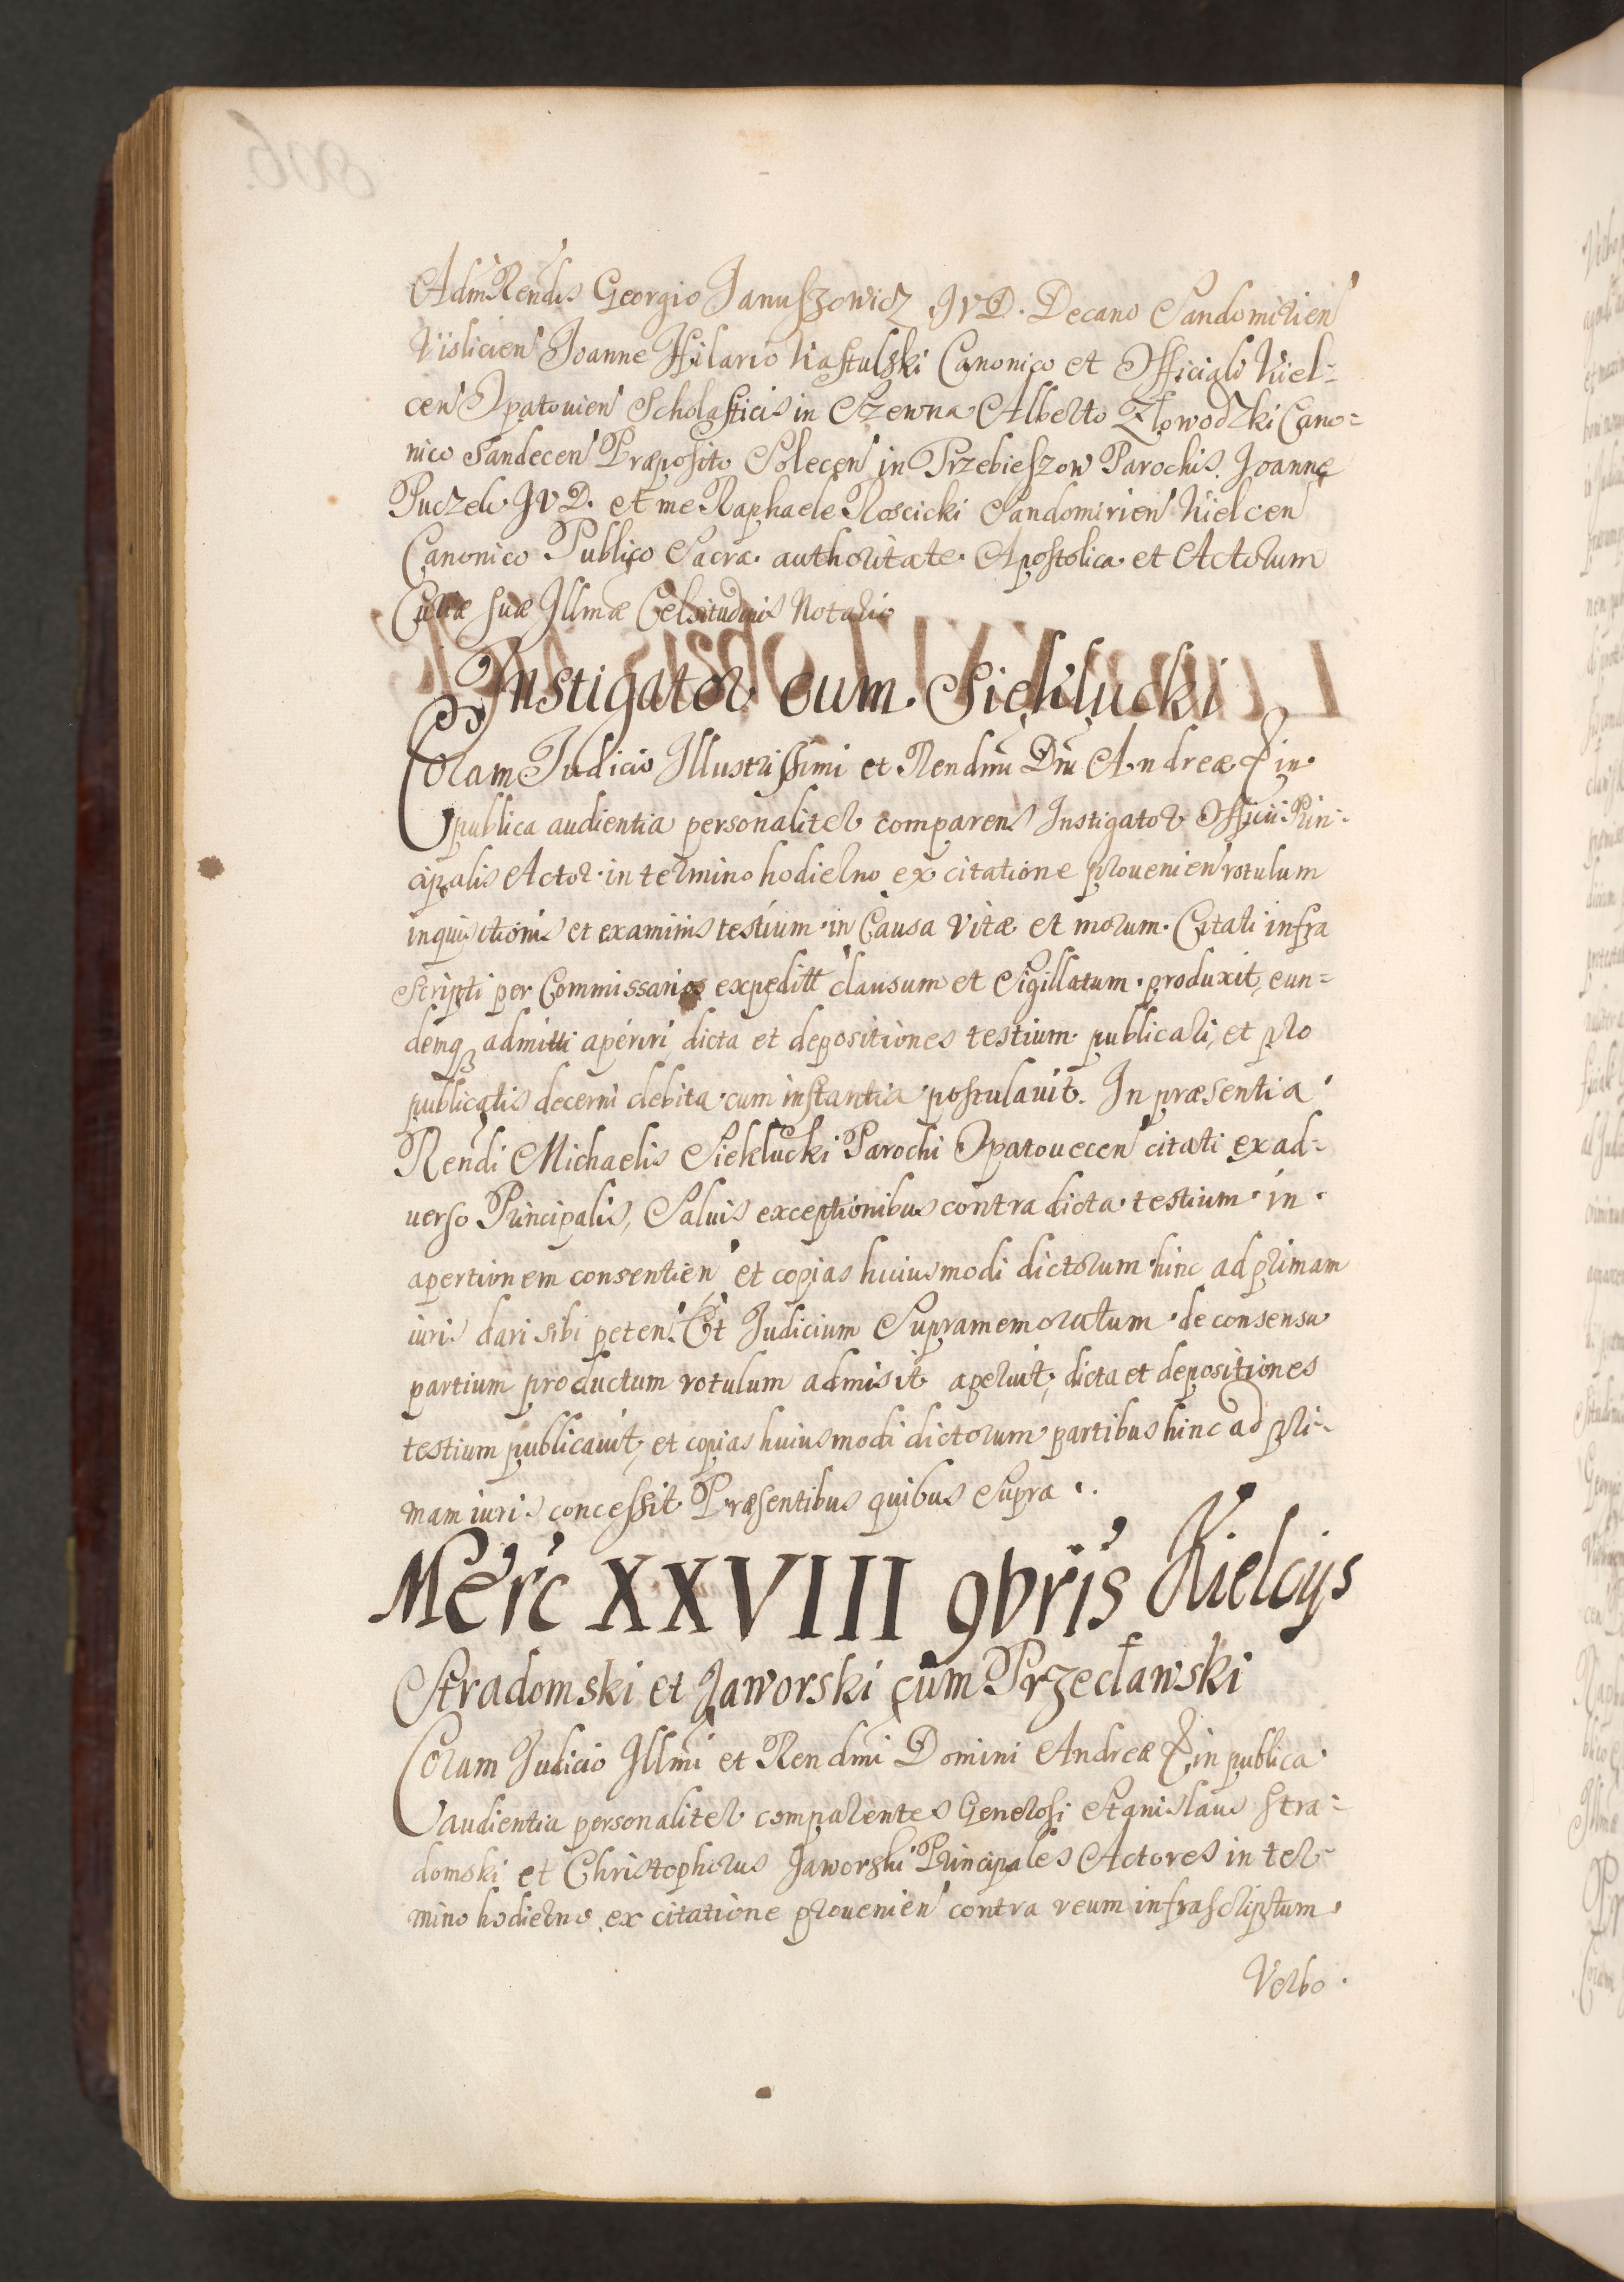 AdmRendis Georgio Januszowicz JVD. Decano Sandomirien
Vislicien Joanne Hilario Kastulski Canonico et Officiali Kiel-
cen Opatovien Scholasticis in Szewna Alberto Zlowodzki Cano-
nico Sandecen Præposito Solecen in Przebieszow Parochis. Joanne
Puczek JVD. et me Raphaele Roscicki Sandomirien Kielcen
Canonico Publico Sacra authoritate Apostolica et Actorum
Curiæ suæ Illmæ Celsitudinis Notario
Instigator cum Sieklucki
Coram Judicio Illustrissimi et Rendmi Dni Andreæ & in
publica audientia personaliter comparens Instigator Officii Prin-
cipalis Actor in termino hodierno ex citatione provenien rotulum
inquisitionis et examinis testium in Causa vitæ et morum Citati infra
scripti per Commissarios expeditt clausum et Sigillatum produxit, eun-
demq admitti aperiri, dicta et depositiones testium publicari, et pro
publicatis decerni debita cum instantia postulavit. In præsentia
Rendi Michaelis Sieklucki Parochi Opatovecen citati ex ad-
verso Principalis, Salvis exceptionibus contra dicta testium in
apertionem consentien et copias huiusmodi dictorum hinc ad primam
iuris dari sibi peten. Et Judicium Supramemoratum de consensu
partium productum rotulum admisit aperuit, dicta et depositiones
testium publicavit, et copias huiusmodi dictorum partibus hinc ad pri-
mam iuris concessit. Præsentibus quibus Supra.
Merc XXVIII 9bris Kielcijs
Stradomski et Jaworski cum Przecławski
Coram Judicio Illmi et Rendmi Domini Andreæ & in publica
audientia personaliter comparentes Generosi Stanislaus Stra-
domski et Christophorus Jaworski Principales Actores in ter-
mino hodierno ex citatione provenien contra reum infrascriptum
Verbo